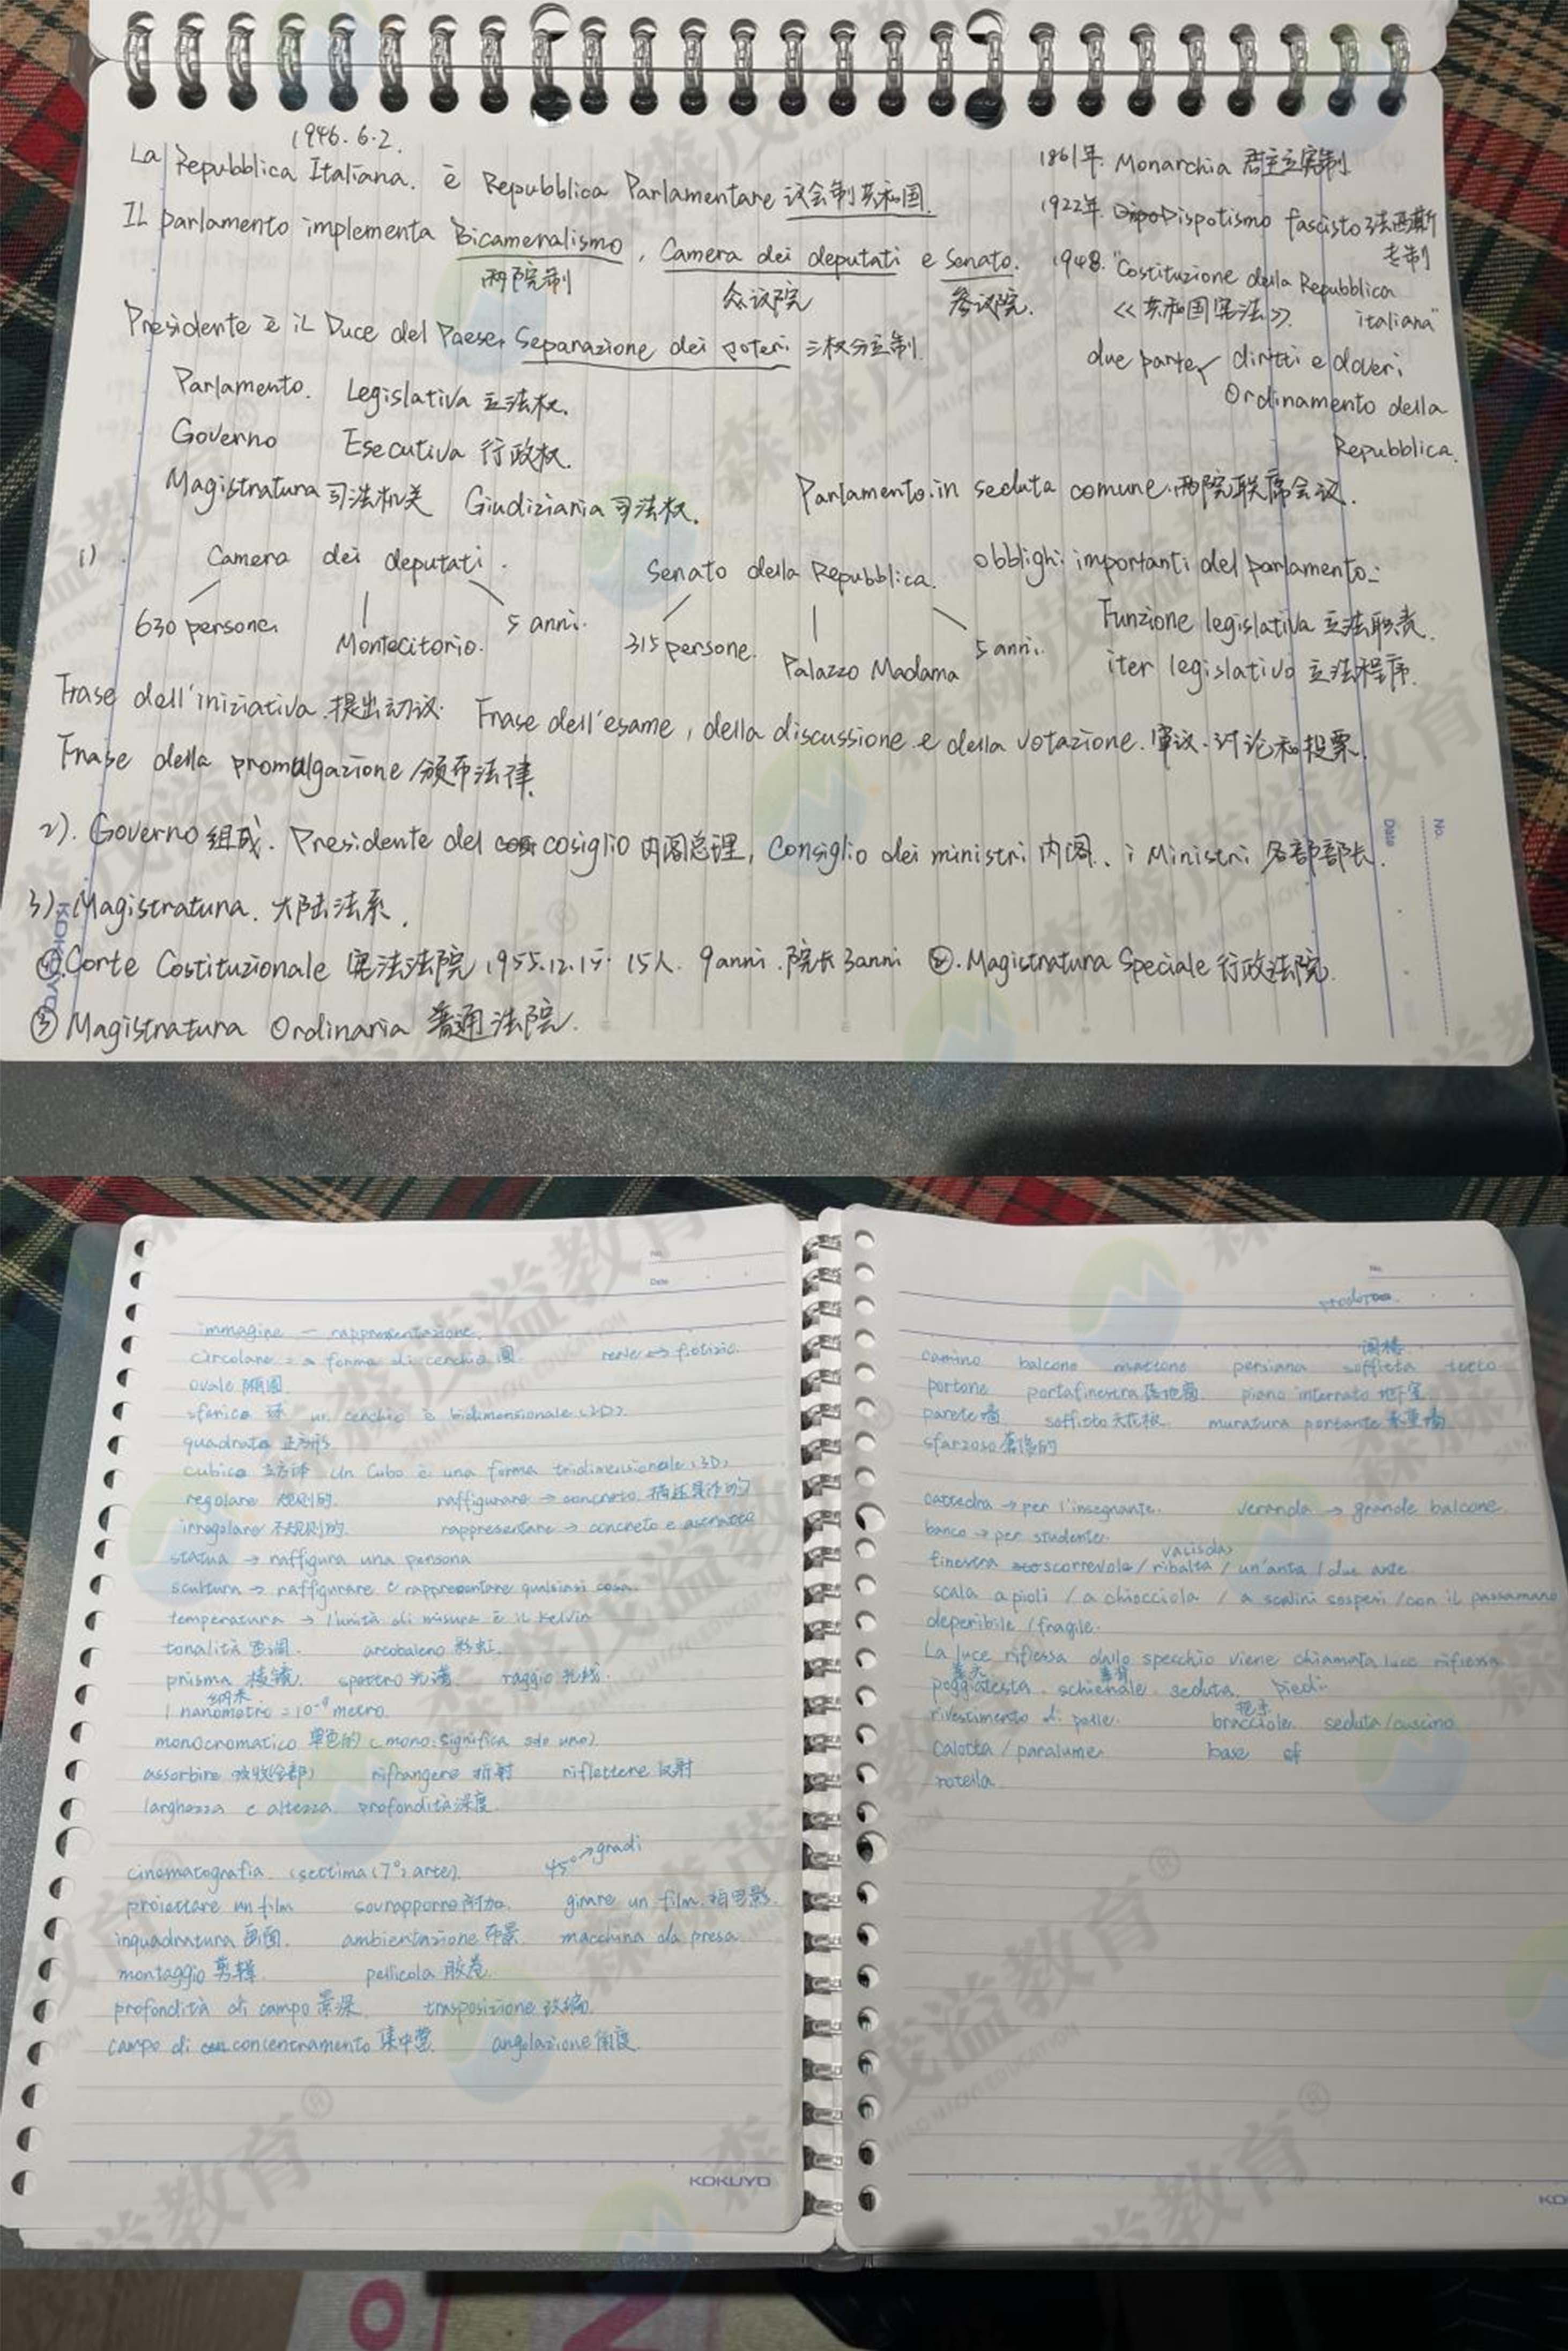 1946.6.2.
La Repubblica Italiana. è Repubblica Parlamentare 议会制共和国.
IL parlamento implementa Bicameralismo, Camera dei deputati e Senato.
两院制 众议院 参议院.
Presidente è il Duce del Paese, Separazione dei poteri 三权分立制.
Parlamento. Legislativa 立法权.
Governo Esecutiva 行政权.
Magistratura 司法机关 Giudiziaria 司法权.
1861年. Monarchia 君主立宪制
1922年. Dispotismo fascisto 法西斯
专制
1948. "Costituzione della Repubblica
《共和国宪法》. italiana"
due parte diritti e doveri
Ordinamento della
Repubblica.
Parlamento in seduta comune.两院联席会议.
1) Camera dei deputati.
630 persone. Montecitorio. 5 anni.
Senato della Repubblica.
315 persone. Palazzo Madama 5 anni.
obblighi importanti del parlamento:
Funzione legislativa 立法职责.
iter legislativo 立法程序.
Frase dell'iniziativa.提出动议. Frase dell'esame, della discussione e della votazione.审议.讨论和投票.
Frase della promulgazione 颁布法律.
2). Governo 组成. Presidente del cosiglio 内阁总理, Consiglio dei ministri 内阁、i Ministri 各部部长.
3). Magistratura. 大陆法系.
Corte Costituzionale 宪法法院 1955.12.15. 15人. 9anni.院长3anni ②. Magistratura Speciale 行政法院.
③ Magistratura Ordinaria 普通法院.
No.
Date
KOKUYO
No.
Date
immagine — rappresentazione.
circolare = a forma di cerchio 圆
ovale 椭圆
sferico 球 un cerchio è bidimensionale (2D).
quadrato 正方形
cubico 立方体 un cubo è una forma tridimensionale (3D)
regolare 规则的. raffigurare → concreto.
irregolare 不规则的. rappresentare → concreto e astratto
statua → raffigura una persona
scultura → raffigurare e rappresentare qualsiasi cosa.
temperatura → l'unità di misura è il Kelvin
tonalità 色调. arcobaleno 彩虹.
prisma 棱镜. spettro 光谱. raggio 光线.
纳米
1 nanometro = 10⁻⁹ metro.
monocromatico 单色的 (mono. significa solo uno)
assorbire 吸收(全部) rifrangere 折射 riflettere 反射
larghezza e altezza. profondità 深度.
cinematografia (settima (7°) arte). 45° → gradi
proiettare un film sovrapporre 附加. girare un film.拍电影.
inquadratura 画面. ambientazione 布景. macchina da presa.
montaggio 剪辑. pellicola 胶卷.
profondità di campo 景深. trasposizione 改编.
campo di concentramento 集中营. angolazione 角度.
KOKUYO
No.
阁楼
camino balcone mattone persiana soffitta tetto
portone portafinestra 落地窗 piano interrato 地下室
parete 墙 soffitto 天花板 muratura portante 承重墙
sfarzoso 奢侈的
cattedra → per l'insegnante. veranda → grande balcone.
banco → per studente.
finestra scorrevole / ribalta / un'anta / due ante
scala a pioli / a chiocciola / a scalini sospesi / con il passamano
deperibile / fragile.
La luce riflessa dallo specchio viene chiamata luce riflessa
poggiatesta. schienale. seduta. piedi.
rivestimento di pelle. bracciole. seduta/cuscino
calotta / paralume. base
rotella.